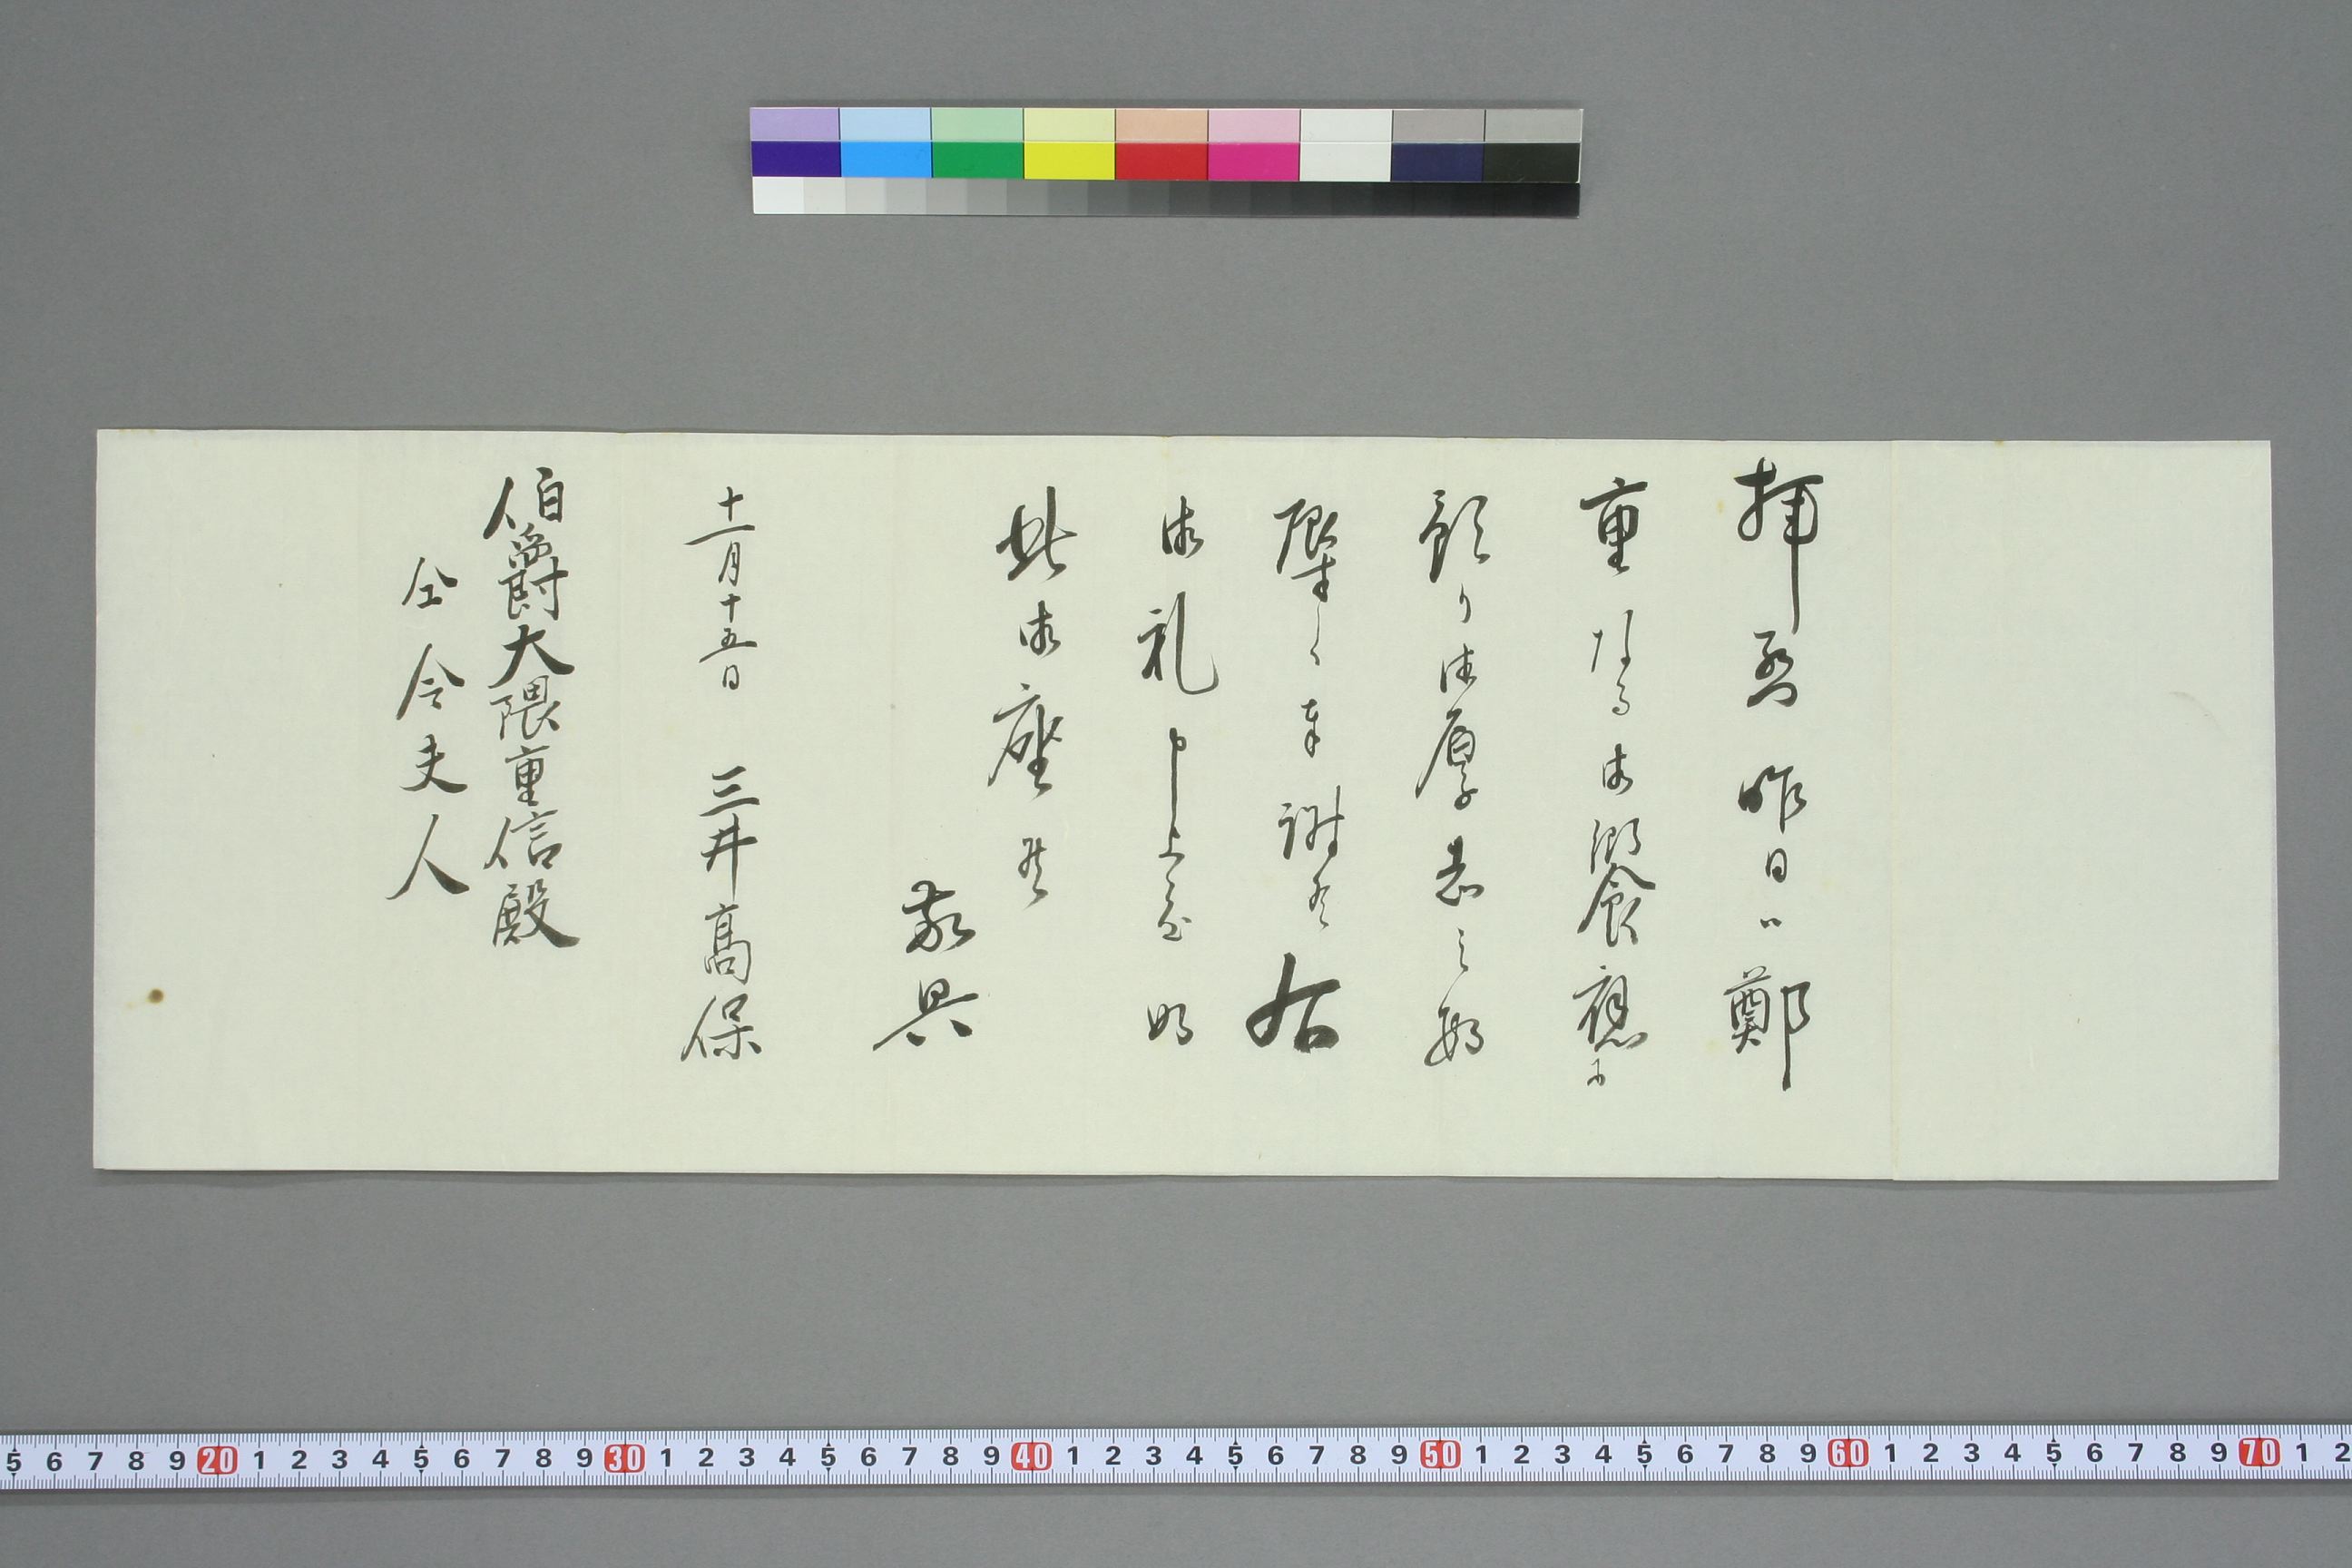 拝啓昨日ハ鄭
重なる御饗應に
預り御厚志之段
奉謝候右
御礼申上度如
此御座候
敬具
十一月十五日　三井高保
伯爵大隈重信殿
仝令夫人
5 6 7 8 9 20 1 2 3 4 5 6 7 8 9 30 1 2 3 4 5 6 7 8 9 40 1 2 3 4 5 6 7 8 9 50 1 2 3 4 5 6 7 8 9 60 1 2 3 4 5 6 7 8 9 70 1 2